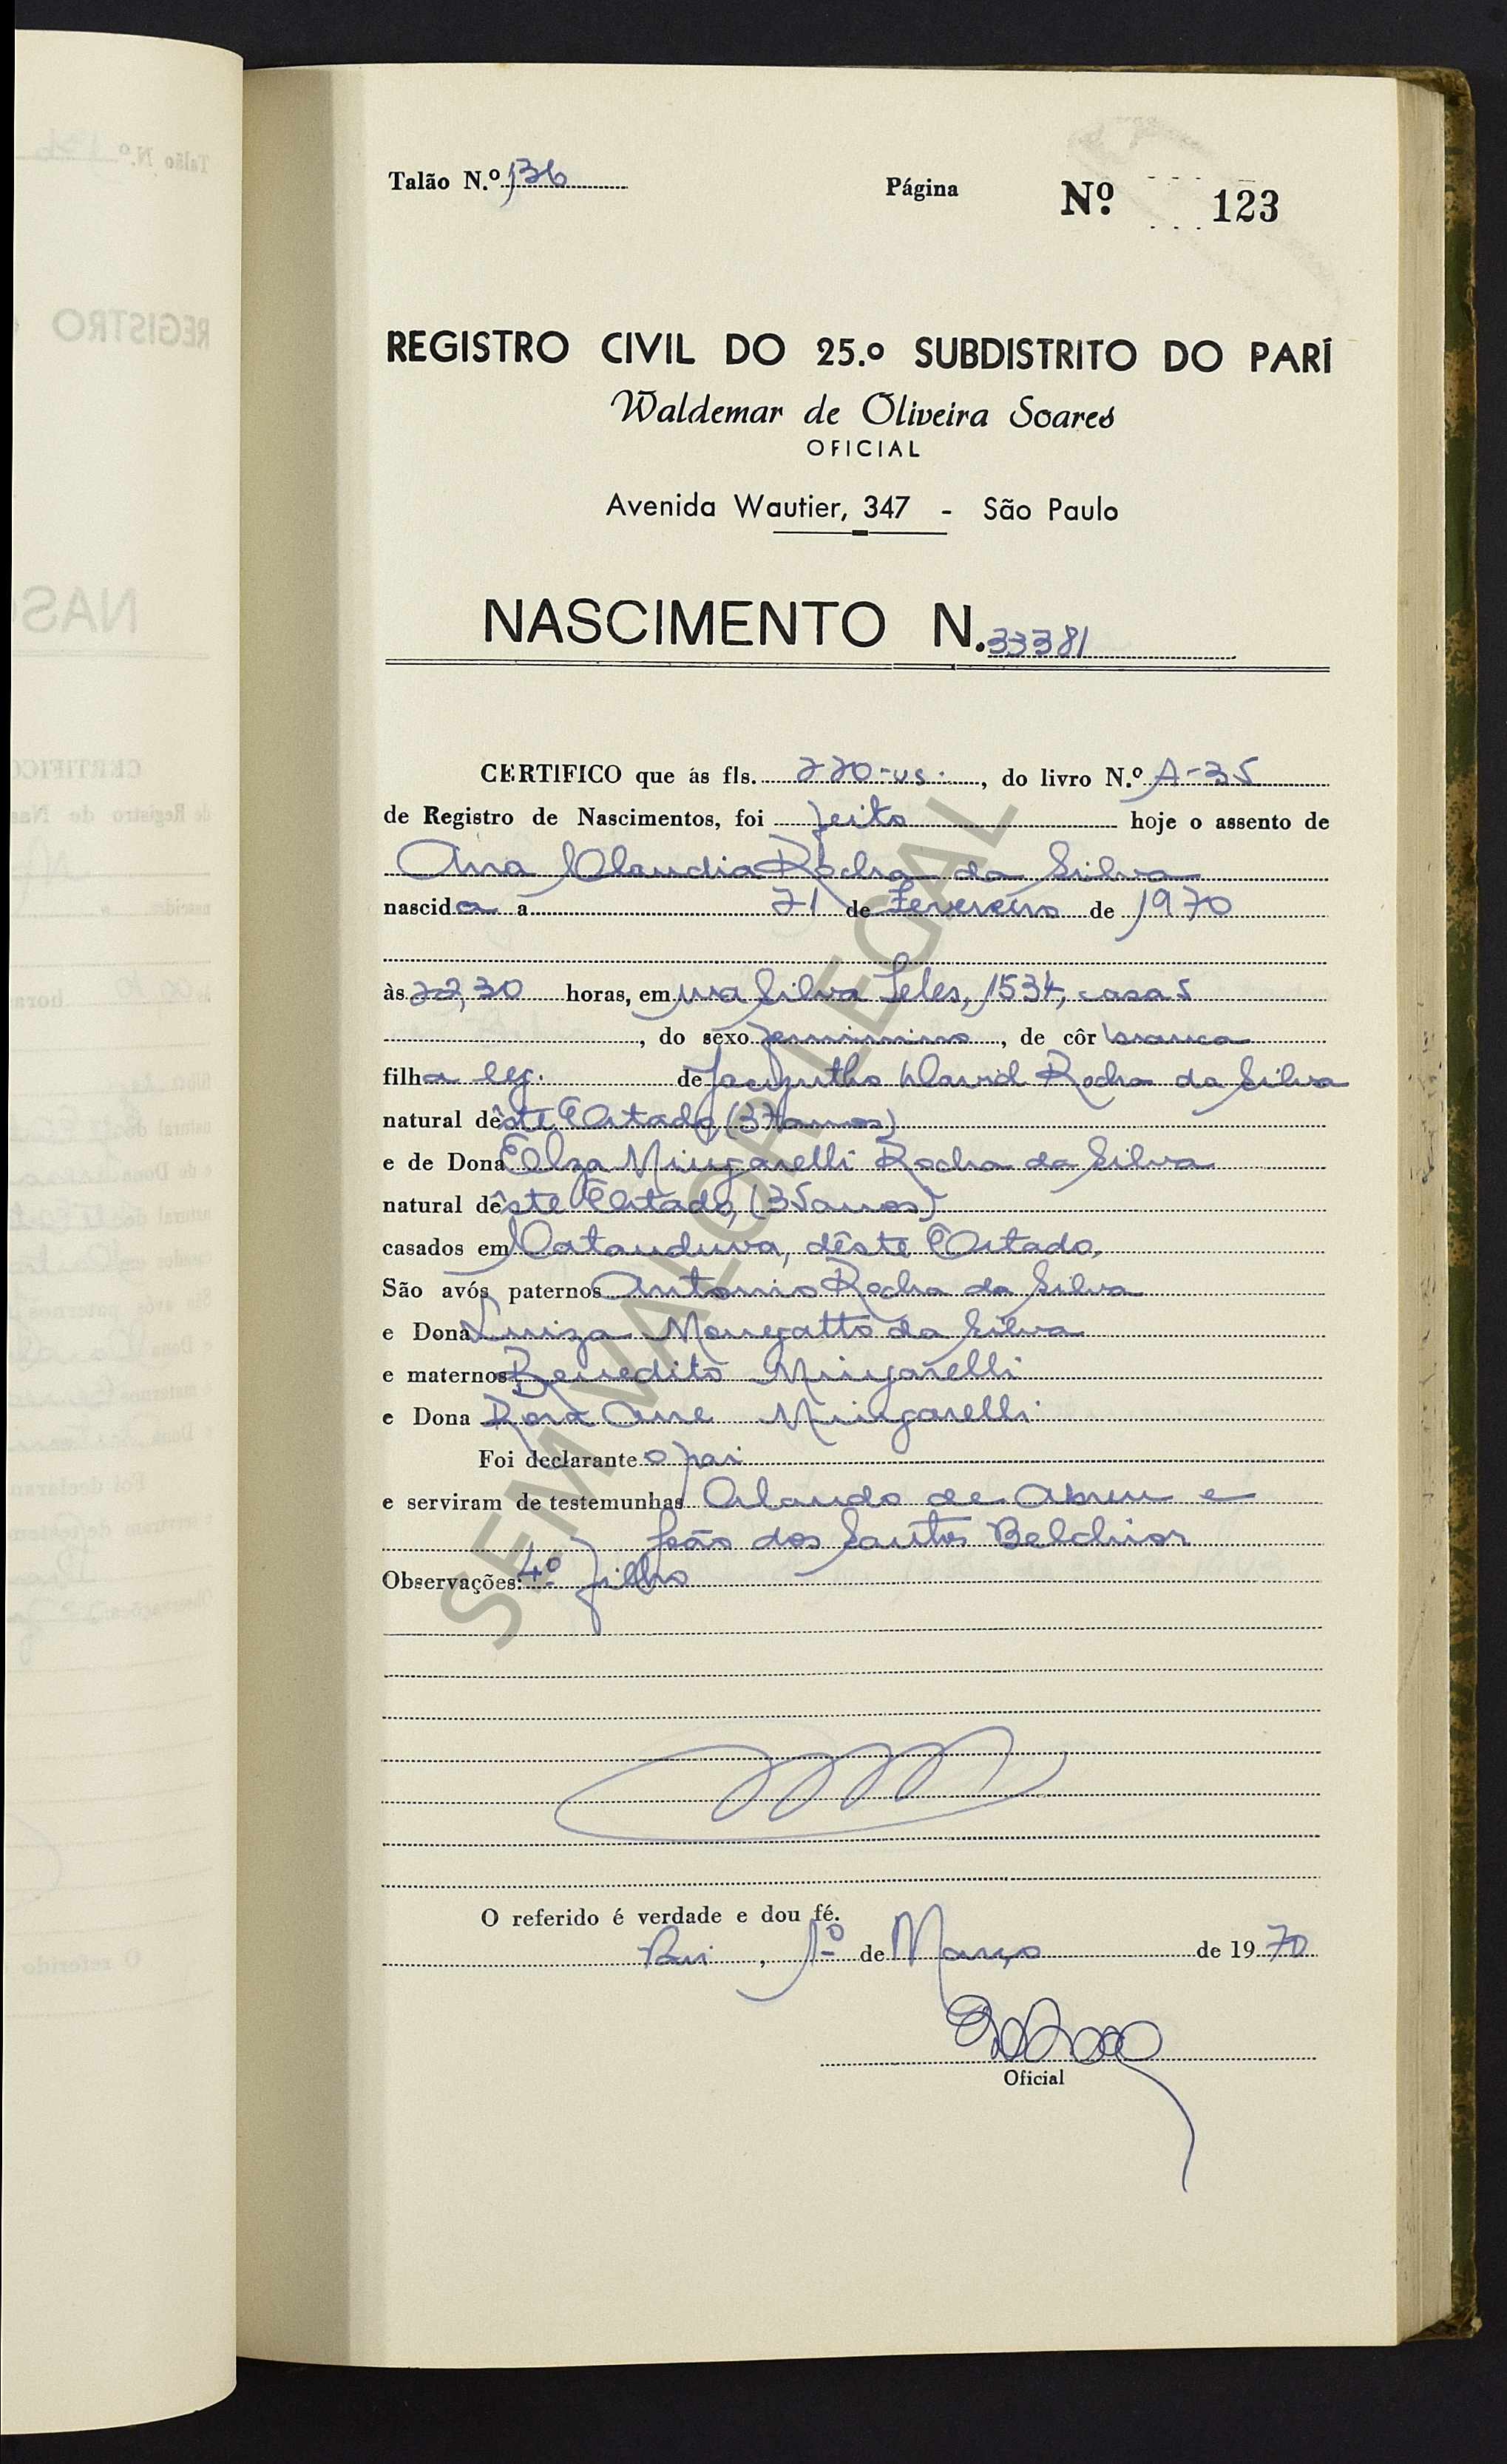 Talão N.º 136 Página Nº 123
REGISTRO CIVIL DO 25.º SUBDISTRITO DO PARÍ
Waldemar de Oliveira Soares
OFICIAL
Avenida Wautier, 347 - São Paulo
NASCIMENTO N. 33381
CERTIFICO que ás fls. 220-vs., do livro N.º A-35
de Registro de Nascimentos, foi feito hoje o assento de
Ana Claudia Rocha da Silva
nascida a 21 de Fevereiro de 1970
às 22,30 horas, em rua Silva Teles, 1534, casa 5
, do sexo feminino, de côr branca
filha leg. de Jacyntho David Rocha da Silva
natural dêste Estado, (37 anos)
e de Dona Elza Mingarelli Rocha da Silva
natural dêste Estado, (35 anos)
casados em Catanduva, dêste Estado,
São avós paternos Antonio Rocha da Silva
e Dona Luiza Monegatto da Silva
e maternos Benedito Mingarelli
e Dona Rosa Mingarelli
Foi declarante o pai
e serviram de testemunhas Orlando de Abreu e
João dos Santos Belchior
Observações: 4º filho
O referido é verdade e dou fé.
Pari, 1º de Março de 1970
Oficial
SEM VALOR LEGAL